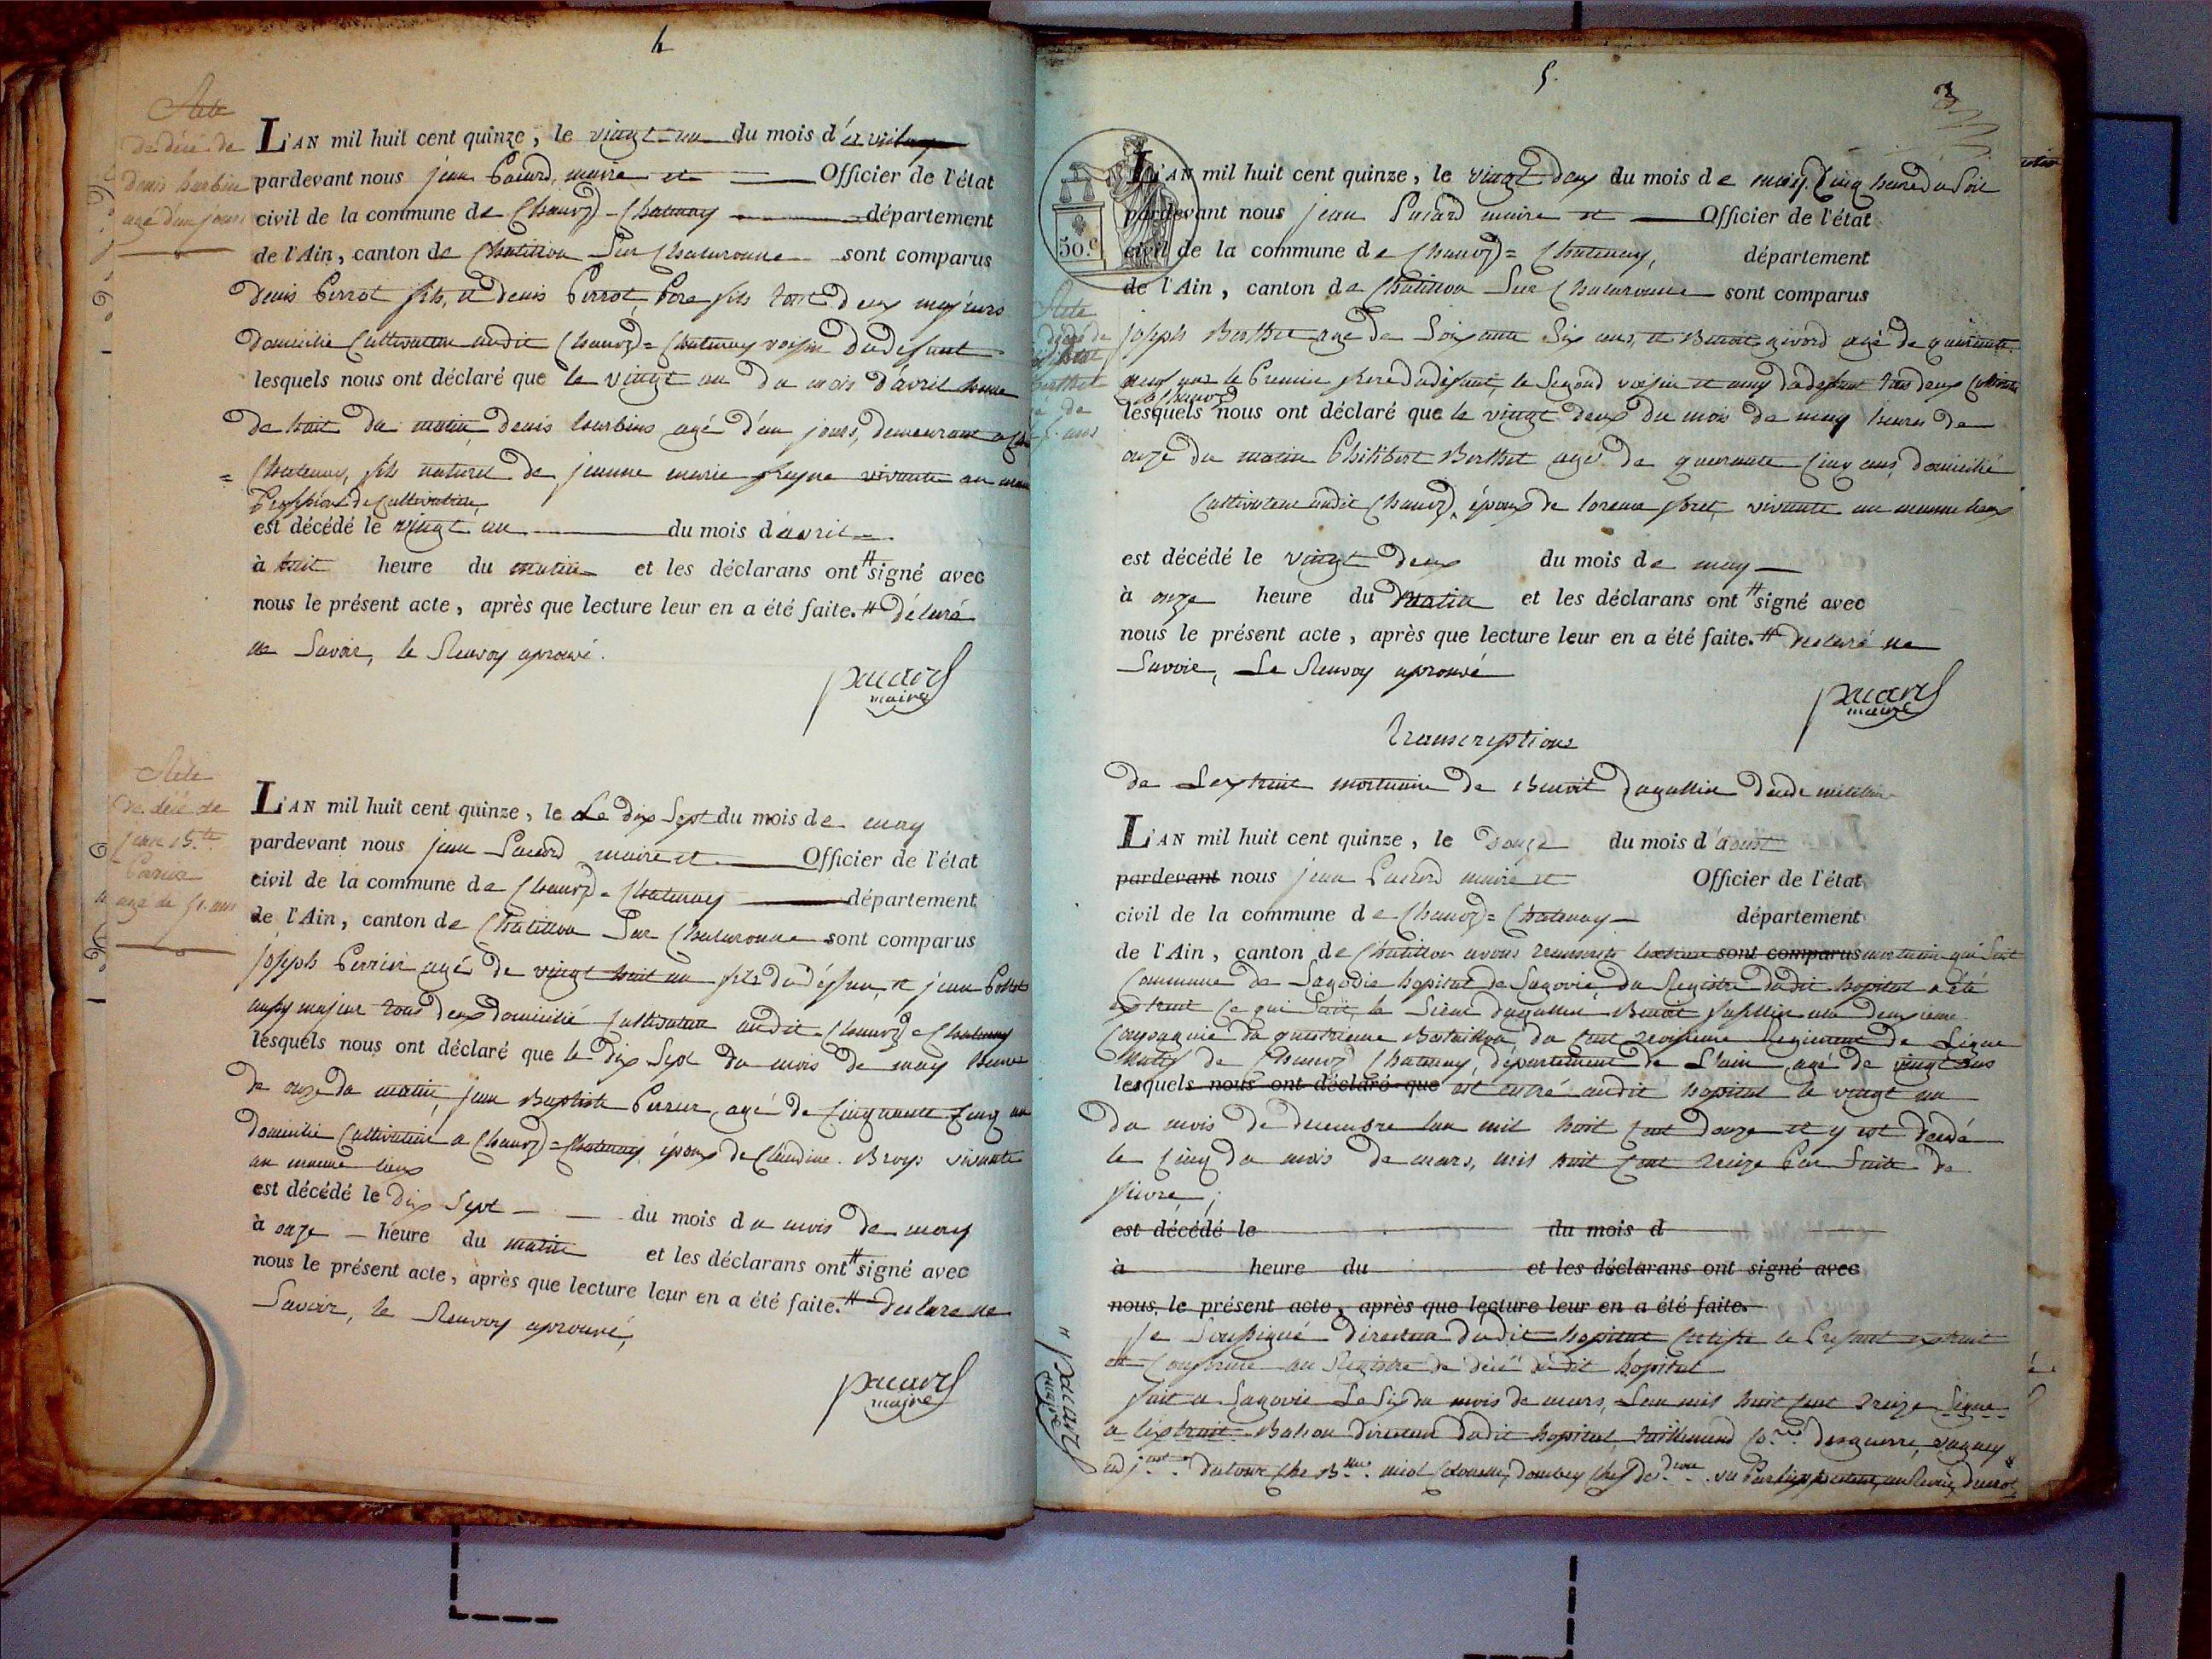 4
Acte
de décé de
denis hurbin
agé d'un jours
L'AN mil huit cent quinze, le vingt-un du mois d'avril
pardevant nous jean Pacard, maire et Officier de l'état
civil de la commune de Chanoz-Chatenay département
de l'Ain, canton de Chatillon Sur Chalaronne sont comparus
denis Perrot fils, et denis Perrot Pere fils tout deux majeurs
domicilié Cultivateur audit Chanoz=Chatenay voisin dudefunt
lesquels nous ont déclaré que le vingt un du mois d'avril heure
de huit du matin, denis hurbins agé d'un jours, demeurant a
=Chatenay, fils naturel de jeanne marie vivante
Proffession de Cultivatrice
est décédé le vingt un du mois d'avril
à huit heure du matin et les déclarans ont # signé avec
nous le présent acte, après que lecture leur en a été faite. # déclaré
ne Savoir, le Renvoy aprouvé.
pacard
maire
Acte
de décé de
jean B.te
Perrier
agé de 51. ans
L'AN mil huit cent quinze, le Le dix Sept du mois de may
pardevant nous jean Pacard maire et Officier de l'état
civil de la commune de Chanoz=Chatenay département
de l'Ain, canton de Chatillon Sur Chalaronne sont comparus
joseph Perrier agé de vingt huit an fils du défunt, et jean
aussy majeur tous deux domicilié Cultivateur audit Chanoz=Chatenay
lesquels nous ont déclaré que le dix Sept du mois de may heure
de onze du matin, jean Baptiste Perrier, agé de Cinquante Cinq an
domicilié Cultivateur a Chanoz=Chatenay, époux de Claudine Broys vivante
au meme lieux
est décédé le Dix Sept du mois du mois de may
à onze heure du matin et les déclarans ont # signé avec
nous le présent acte, après que lecture leur en a été faite. # déclare ne
Savoir, le Renvoy aprouvé,
pacard
maire
5.
3
50.c
L'AN mil huit cent quinze, le vingt deux du mois de may Cinq heure du Soir
pardevant nous jean Pacard maire et Officier de l'état
civil de la commune de Chanoz=Chatenay, département
de l'Ain, canton de Chatillon Sur Chalaronne sont comparus
Acte
décé de
Berthet
joseph Berthet agé de Soixante Six ans, et Benoit givord agé de quarante
neuf ans le Premier frere dudéfunt, le Segond voisin et amy dudefunt tous deux
a Chanoz
lesquels nous ont déclaré que le vingt deux du mois de may heures de
onze du matin Philibert Berthet agé de quarante Cinq ans, domicilié
Cultivateur audit Chanoz, époux de vivante au meme lieux
est décédé le vingt deux du mois de may
à onze heure du matin et les déclarans ont # signé avec
nous le présent acte, après que lecture leur en a été faite. # déclaré ne
Savoir, Le Renvoy aprouvé
pacard
maire
Transcriptions
de Lextrait mortuaire de Benoit dagallier décédé militaire
L'AN mil huit cent quinze, le douze du mois d'aoust
pardevant nous jean Pacard maire et Officier de l'état
civil de la commune de Chanoz=Chatenay département
de l'Ain, canton de Chatillon avons transcrit lextrait sont comparus mortuaire qui Suit
Commune de hopital de du Registre dudit hopital a été
extrait Ce qui Suit, le Sieur dagallier Benoit fusillier a la deuxieme
Compagnie du quatrieme Bataillon du Cent troisieme Regiment de Ligne
Natif de Chanoz Chatenay, département de L'ain, agé de vingt ans
lesquels nous ont déclaré que est entré audit hopital le vingt un
du mois de decembre lan mil huit Cent douze et y est décédé
le Cinq du mois de mars, mil huit Cent treize Par Suite de
fievre;
est décédé le du mois d
à heure du et les déclarans ont signé avec
nous le présent acte, après que lecture leur en a été faite.
Je Soussigné directeur dudit hopital Certifie le Present extrait
et Conforme au Registre de décé dudit hopital
fait a Le Six du mois de mars, Lan mil huit Cent treize Signé
a lextrait directeur dudit hopital,
pacard
maire